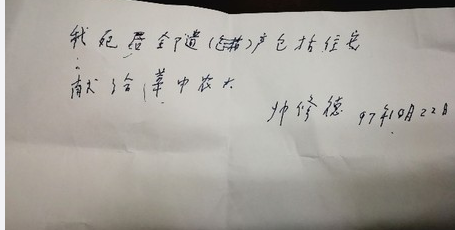 我死后全部遗()产包括住房
献给华中农大
帅修德 97年10月22日